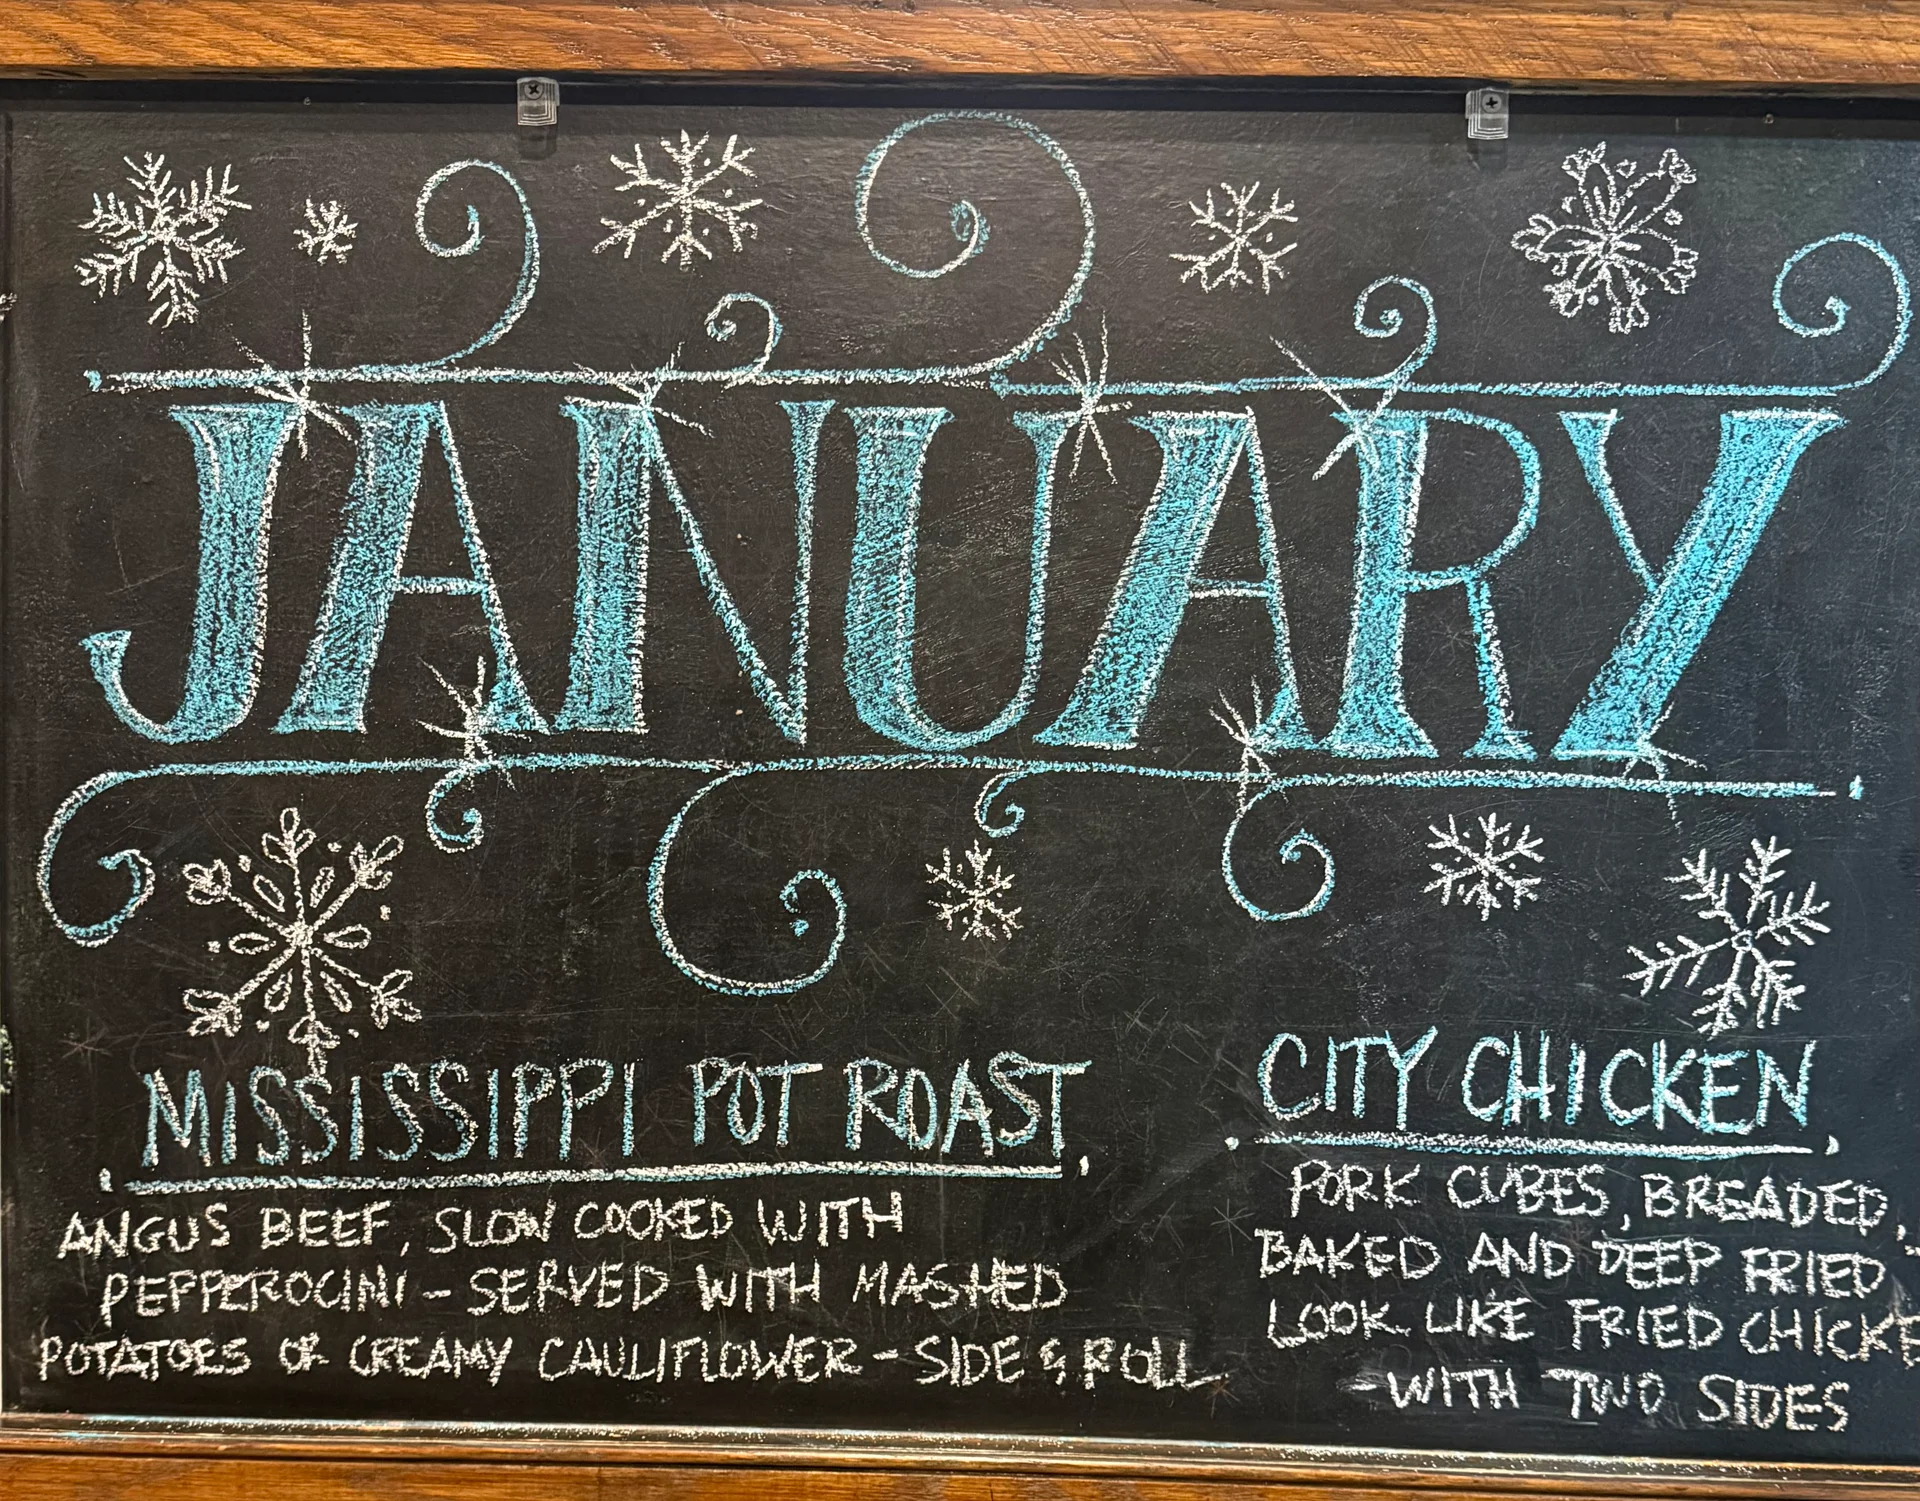 JANUARY
MISSISSIPPI POT ROAST
ANGUS BEEF, SLOW COOKED WITH
PEPPEROCINI - SERVED WITH MASHED
POTATOES OR CREAMY CAULIFLOWER - SIDE & ROLL
CITY CHICKEN
PORK CUBES, BREADED,
BAKED AND DEEP FRIED
LOOK LIKE FRIED CHICKE
- WITH TWO SIDES